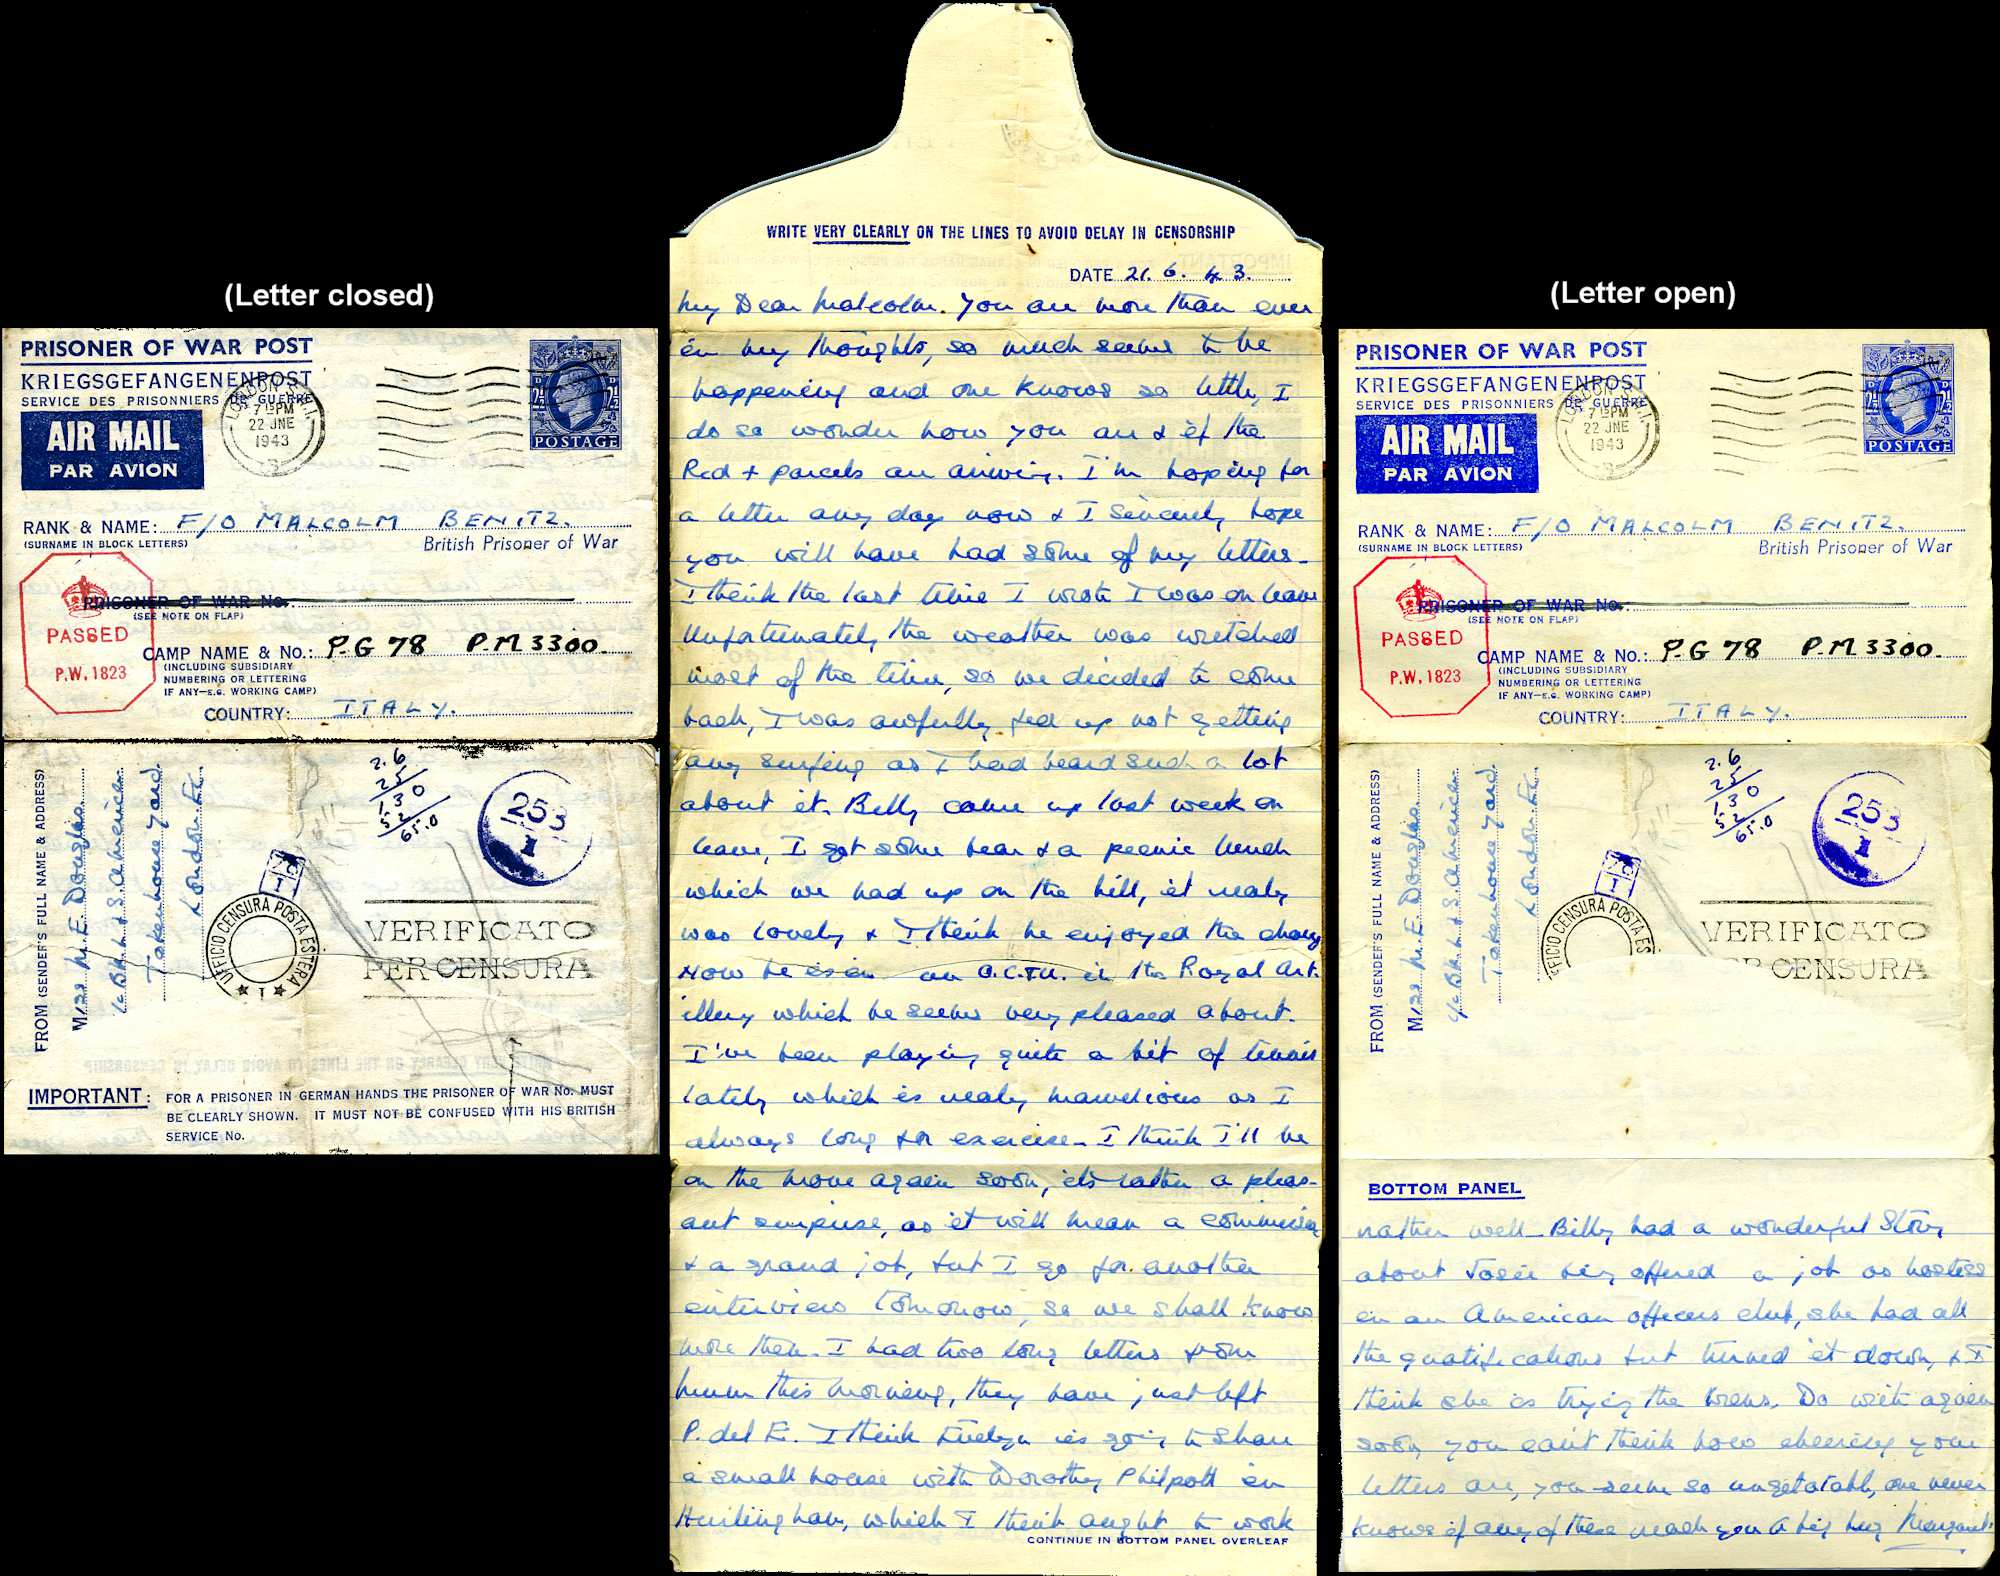 (Letter closed)
PRISONER OF WAR POST
KRIEGSGEFANGENENPOST
SERVICE DES PRISONNIERS DE GUERRE
AIR MAIL
PAR AVION
LONDON
7 15 PM
22 JNE
1943
POSTAGE
RANK & NAME: F/O MALCOLM BENITZ.
(SURNAME IN BLOCK LETTERS)
British Prisoner of War
PRISONER OF WAR No.
(SEE NOTE ON FLAP)
PASSED
P.W. 1823
CAMP NAME & No.: P.G 78 P.M 3300.
(INCLUDING SUBSIDIARY
NUMBERING OR LETTERING
IF ANY—E.G. WORKING CAMP)
COUNTRY: ITALY.
FROM (SENDER'S FULL NAME & ADDRESS)
Miss M. E. Douglas.
c/o B & L & S. America.
Tokenhouse Yard
London. E.C.
2.6
25
130
52
65.0
253
I
UFFICIO CENSURA POSTA ESTERA
I
VERIFICATO
PER CENSURA
IMPORTANT: FOR A PRISONER IN GERMAN HANDS THE PRISONER OF WAR No. MUST
BE CLEARLY SHOWN. IT MUST NOT BE CONFUSED WITH HIS BRITISH
SERVICE No.
WRITE VERY CLEARLY ON THE LINES TO AVOID DELAY IN CENSORSHIP
DATE 21. 6. 43.
My Dear Malcolm. You are more than ever
in my thoughts, so much seems to be
happening and one knows so little, I
do so wonder how you are & if the
Red + parcels are arriving. I'm hoping for
a letter any day now & I sincerely hope
you will have had some of my letters.
I think the last time I wrote I was on leave
Unfortunately the weather was wretched
most of the time, so we decided to come
back, I was awfully fed up not getting
any surfing as I had heard such a lot
about it. Billy came up last week on
leave, I got some beer & a picnic lunch
which we had up on the hill, it realy
was lovely & I think he enjoyed the change
Now he is in an O.C.T.U. in the Royal Art-
illery which he seems very pleased about.
I've been playing quite a bit of tennis
lately which is realy marvelious as I
always long for exercise. I think I'll be
on the move again soon, it's rather a pleas-
ant surprise, as it will mean a commission
& a grand job, but I go for another
interview tomorrow, so we shall know
more then. I had two long letters from
mum this morning, they have just left
P. del E. I think Evelyn is going to share
a small house with Dorothy Philpott in
Hurlingham, which I think aught to work
CONTINUE IN BOTTOM PANEL OVERLEAF
(Letter open)
PRISONER OF WAR POST
KRIEGSGEFANGENENPOST
SERVICE DES PRISONNIERS DE GUERRE
AIR MAIL
PAR AVION
LONDON
7 15 PM
22 JNE
1943
POSTAGE
RANK & NAME: F/O MALCOLM BENITZ.
(SURNAME IN BLOCK LETTERS)
British Prisoner of War
PRISONER OF WAR No.:
(SEE NOTE ON FLAP)
PASSED
P.W. 1823
CAMP NAME & No.: P.G 78 P.M 3300.
(INCLUDING SUBSIDIARY
NUMBERING OR LETTERING
IF ANY—E.G. WORKING CAMP)
COUNTRY: ITALY.
FROM (SENDER'S FULL NAME & ADDRESS)
Miss M. E. Douglas.
c/o B & L & S. America.
Tokenhouse Yard
London. E.C.
2.6
25
130
52
65.0
253
I
FICIO CENSURA POSTA ES
VERIFICATO
CENSURA
BOTTOM PANEL
rather well. Billy had a wonderful story
about Josie being offered a job as hostess
in an American officers club, she had all
the qualifications but turned it down, & I
think she is trying the Wrens. Do write again
soon, you can't think how cheering your
letters are, you seem so ungetatable, one never
knows if any of these reach you A big hug Margaret.